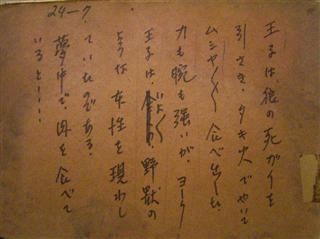 24-7
王子は、狼の死ガイを
引さき、タキ火でやいて
ムシャ〱食べ出した。
力も腕も強いが、ヨーク
王子は、野獣の
ような本性を現わし
ていたのである。
夢中で肉を食べて
いると‥‥